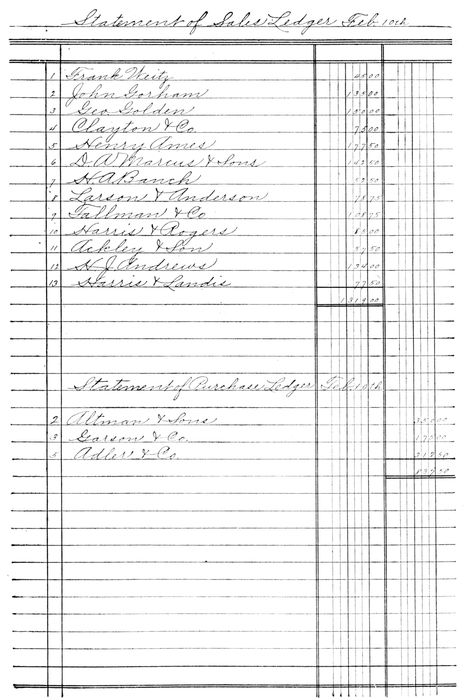 Statement of Sales Ledger Feb. 10th
1 Frank Weitz 45 00
2 John Gorham 135 00
3 Geo. Golden 150 00
4 Clayton & Co. 75 00
5 Henry Ames 177 50
6 D. A. Marcus & Sons 142 50
7 H. A. Banch 52 50
8 Larson & Anderson 78 75
9 Tallman & Co 108 75
10 Harris & Rogers 85 00
11 Ackley & Son 57 50
12 H. J. Andrews 134 00
13 Harris & Landis 77 50
1319 00
Statement of Purchase Ledger Feb. 10th
2 Altman & Sons 350 00
3 Garson & Co. 170 00
5 Adler & Co. 317 50
837 50